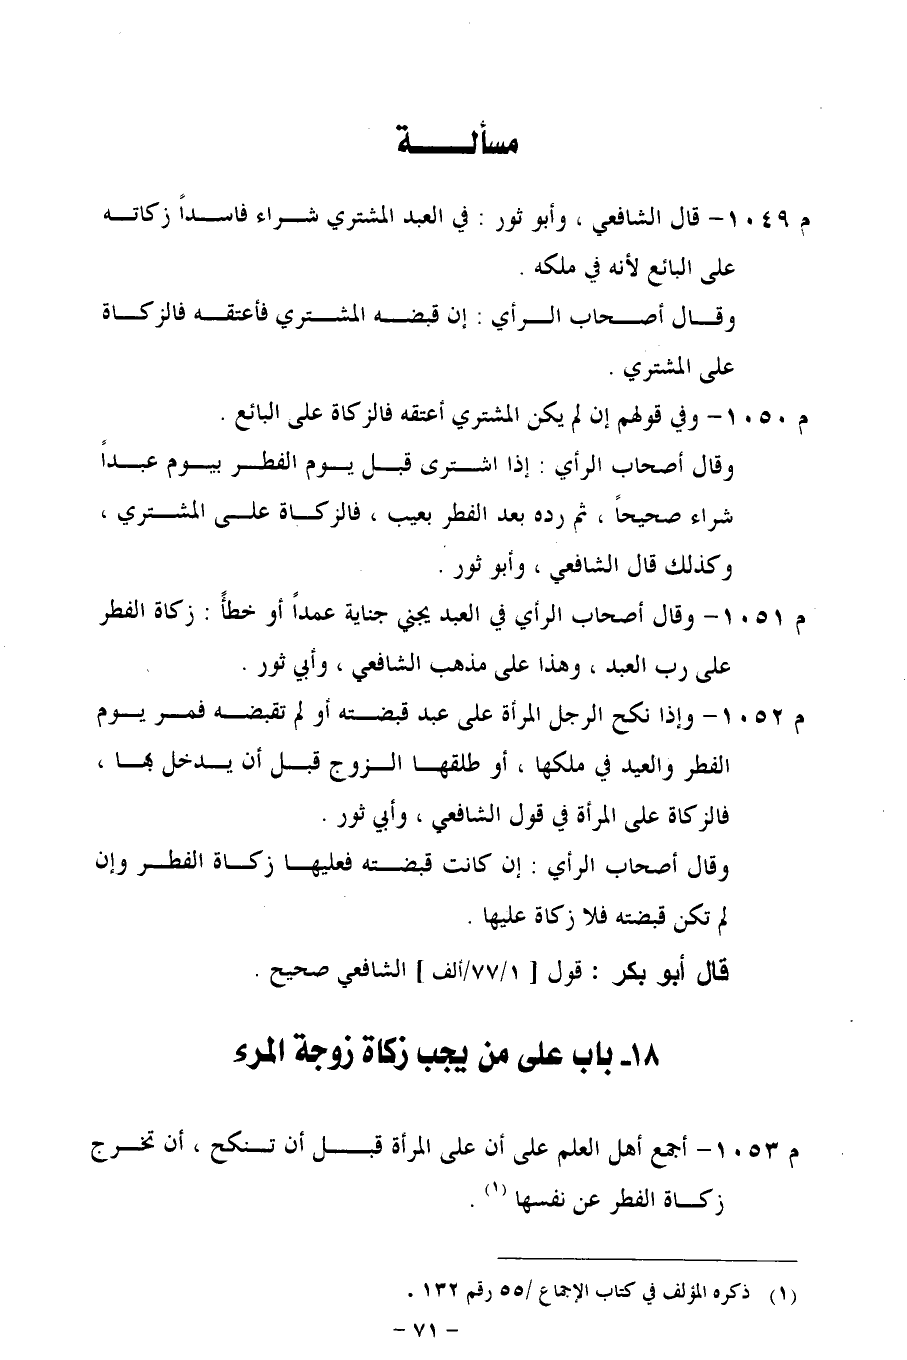 مسألة
م ١٠٤٩- قال الشافعي ، وأبو ثور : في العبد المشتري شراء فاسداً زكاته
على البائع لأنه في ملكه .
وقال أصحاب الرأي : إن قبضه المشتري فأعتقه فالزكاة
على المشتري .
م ١٠٥٠- وفي قولهم إن لم يكن المشتري أعتقه فالزكاة على البائع .
وقال أصحاب الرأي : إذا اشترى قبل يوم الفطر بيوم عبداً
شراء صحيحاً ، ثم رده بعد الفطر بعيب ، فالزكاة على المشتري ،
وكذلك قال الشافعي ، وأبو ثور .
م ١٠٥١- وقال أصحاب الرأي في العبد يجني جناية عمداً أو خطأً : زكاة الفطر
على رب العبد ، وهذا على مذهب الشافعي ، وأبي ثور .
م ١٠٥٢- وإذا نكح الرجل المرأة على عبد قبضته أو لم تقبضه فمر يوم
الفطر والعبد في ملكها ، أو طلقها الزوج قبل أن يدخل بها ،
فالزكاة على المرأة في قول الشافعي ، وأبي ثور .
وقال أصحاب الرأي : إن كانت قبضته فعليها زكاة الفطر وإن
لم تكن قبضته فلا زكاة عليها .
قال أبو بكر : قول [ ٧٧/١/ألف ] الشافعي صحيح .
١٨ـ باب على من يجب زكاة زوجة المرء
م ١٠٥٣- أجمع أهل العلم على أن على المرأة قبل أن تنكح ، أن تخرج
زكاة الفطر عن نفسها (١) .
(١) ذكره المؤلف في كتاب الإجماع /٥٥ رقم ١٣٢ .
- ٧١ -